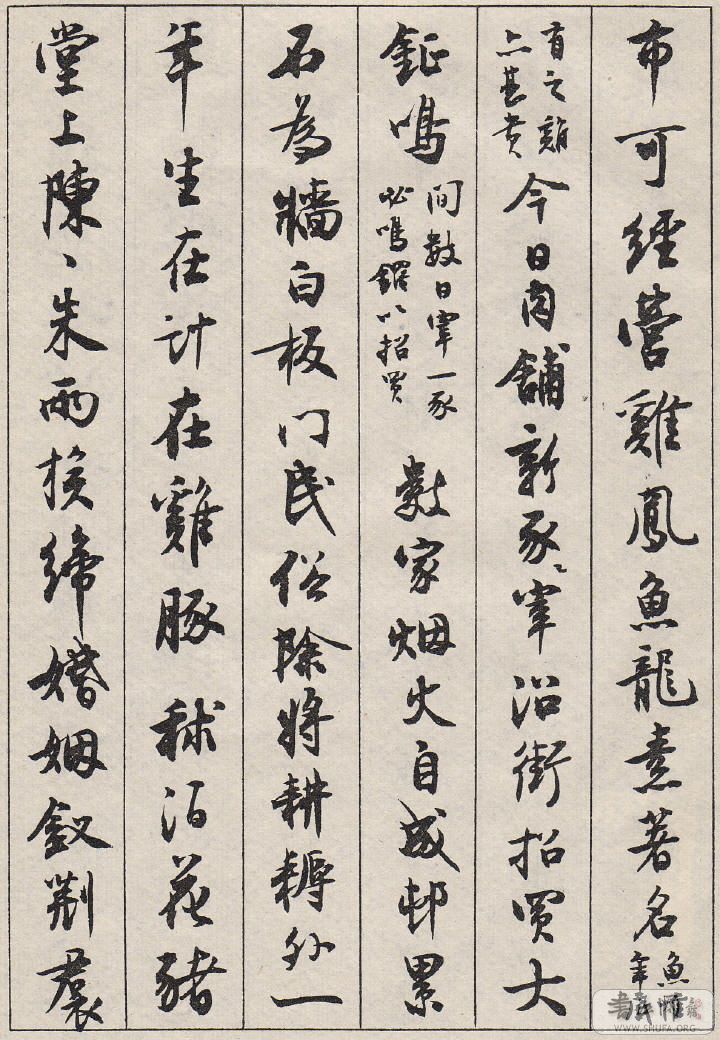 布可經營雞鳳魚龍素著名魚
有之雞
亦甚貴
今日肉舖新豕宰沿街招買大
鉦鳴
間數日宰一豕
必鳴鑼以招買
數家烟火自成邨累
石為牆白板门民俗除將耕耨外一
年生在计在雞豚秫酒花豬
堂上陳〻朱兩族締婚姻釵荊裠
WWW.SHUFA.ORG